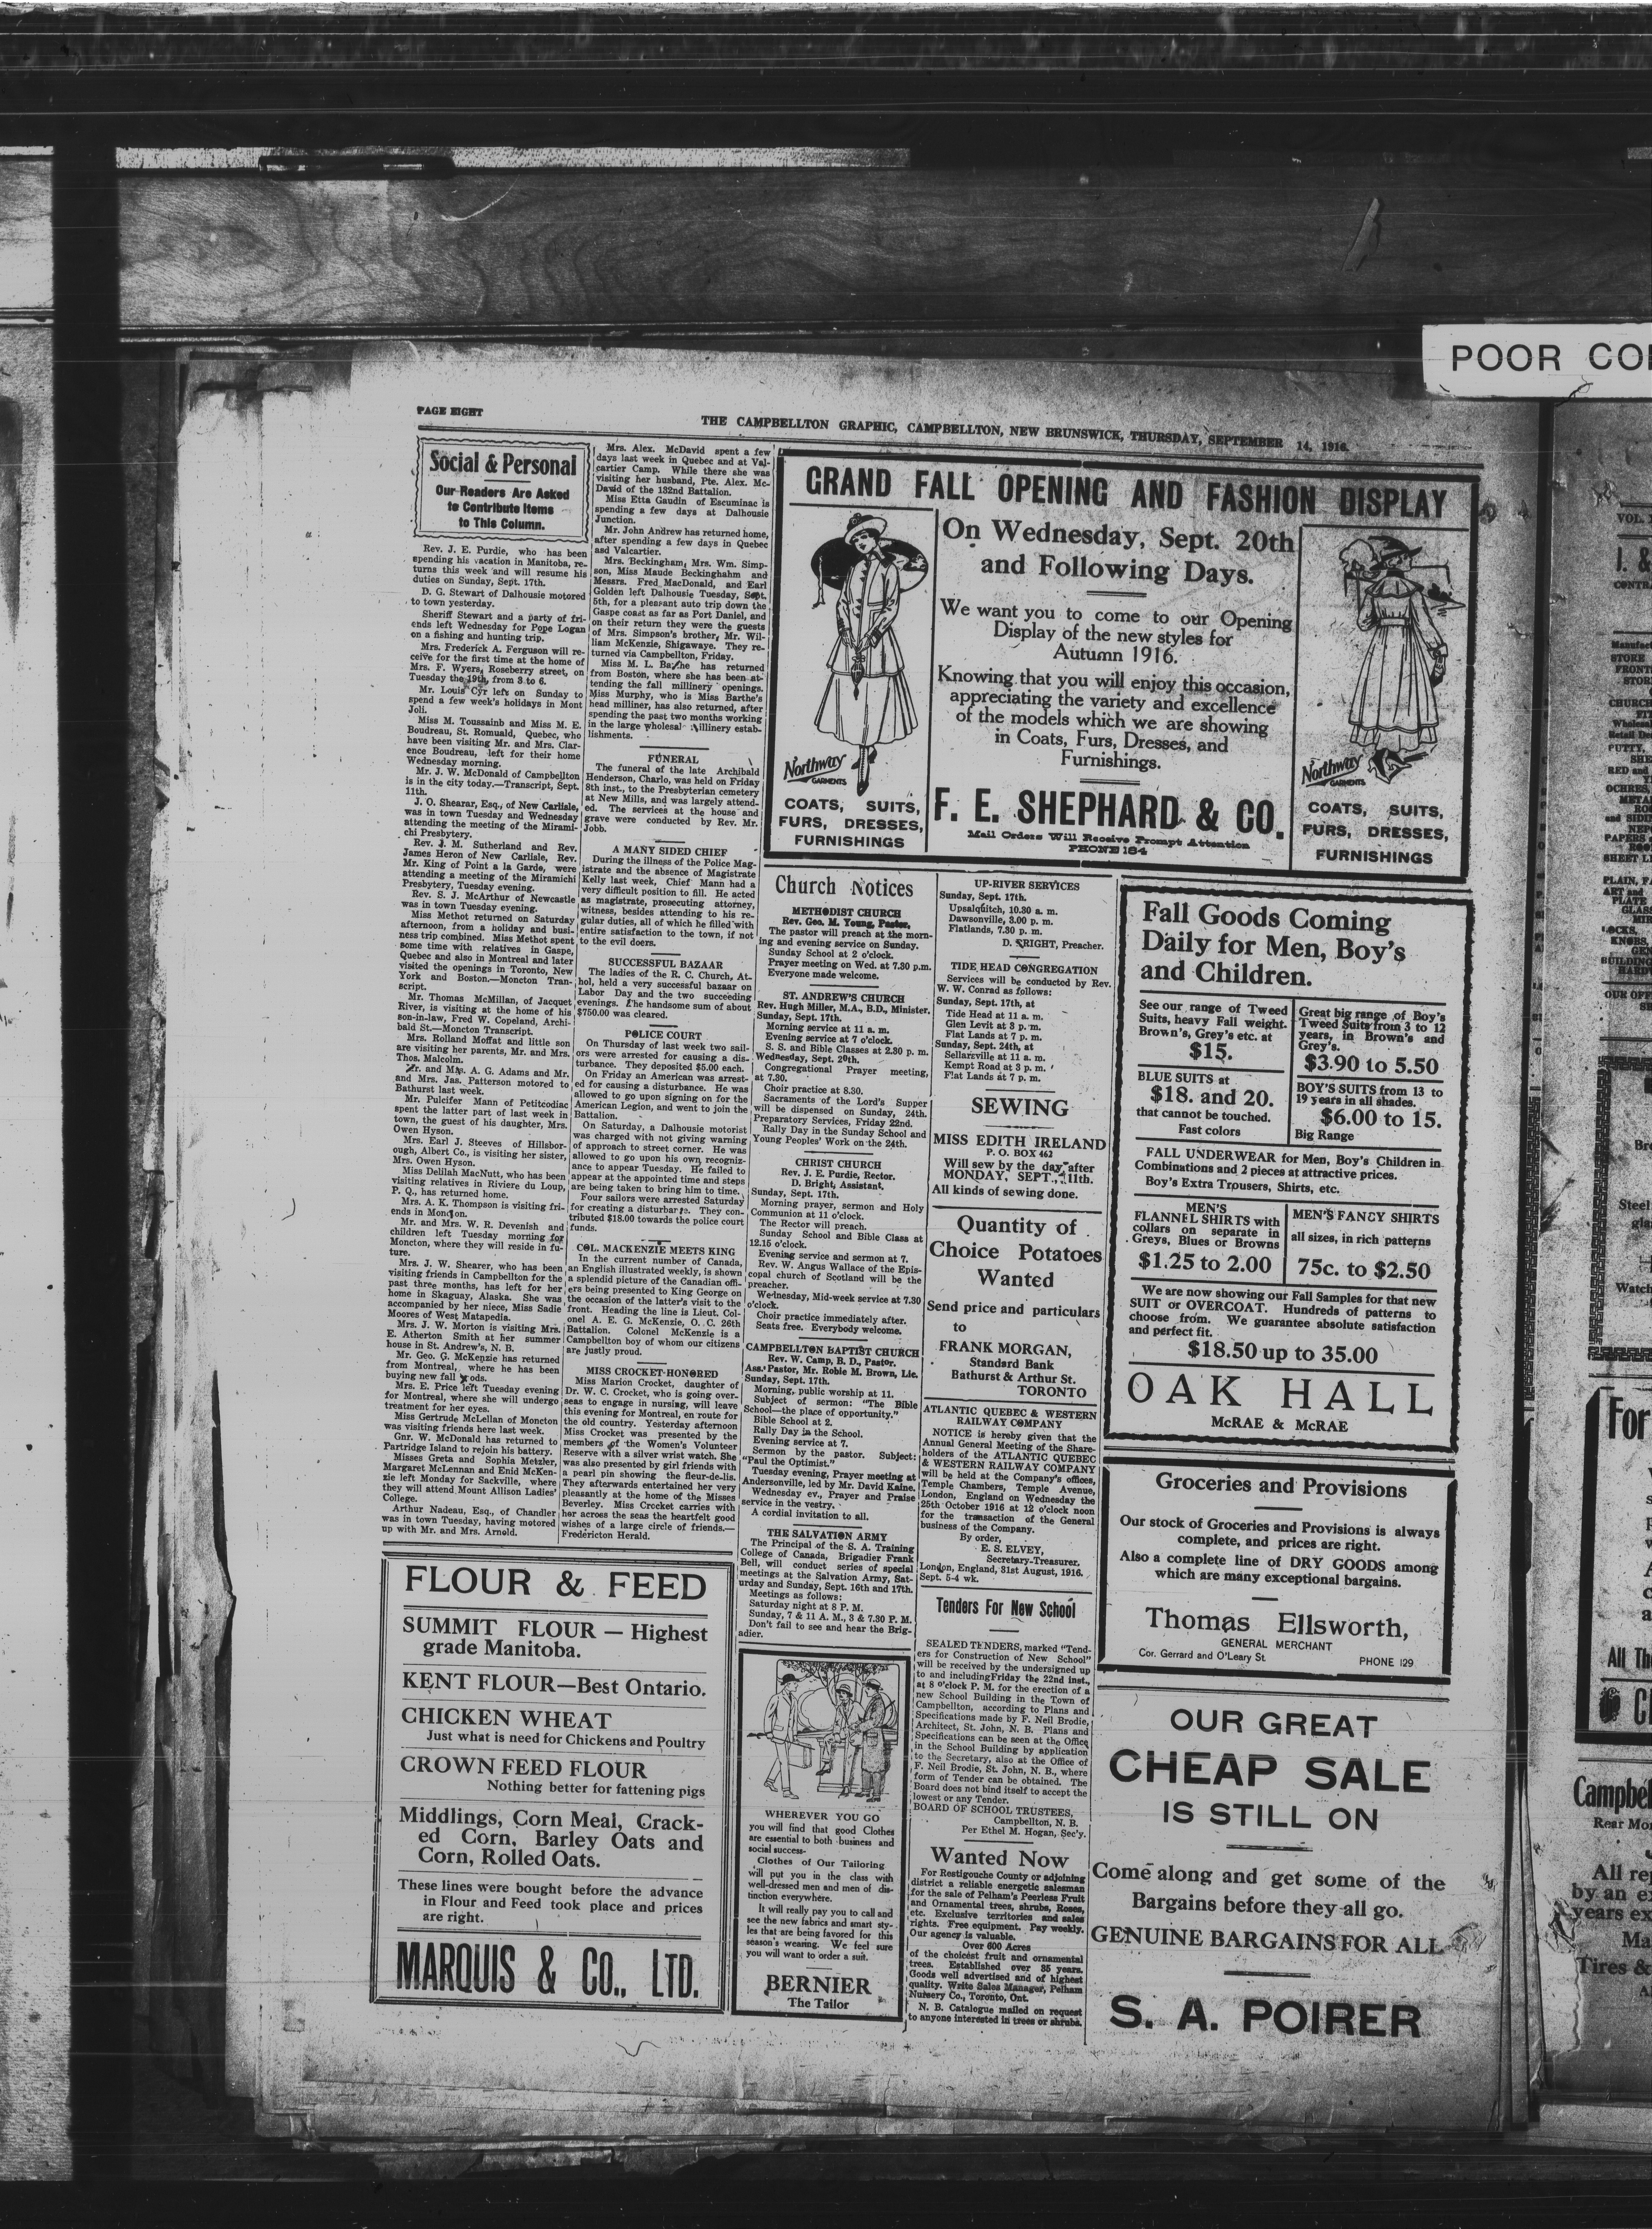 POOR CO
PAGE EIGHT
THE CAMPBELLTON GRAPHIC, CAMPBELLTON, NEW BRUNSWICK, THURSDAY, SEPTEMBER 14, 1916.
Social & Personal
Our Readers Are Asked
to Contribute Items
to This Column.
Rev. J. E. Purdie, who has been
spending his vacation in Manitoba, re-
turns this week and will resume his
duties on Sunday, Sept. 17th.
D. G. Stewart of Dalhousie motored
to town yesterday.
Sheriff Stewart and a party of fri-
ends left Wednesday for Pope Logan
on a fishing and hunting trip.
Mrs. Frederick A. Ferguson will re-
ceive for the first time at the home of
Mrs. F. Wyers, Roseberry street, on
Tuesday the 19th, from 3 to 6.
Mr. Louis Cyr left on Sunday to
spend a few week's holidays in Mont
Joli.
Miss M. Toussainb and Miss M. E.
Boudreau, St. Romuald, Quebec, who
have been visiting Mr. and Mrs. Clar-
ence Boudreau, left for their home
Wednesday morning.
Mr. J. W. McDonald of Campbellton
is in the city today.—Transcript, Sept.
11th.
J. O. Shearar, Esq., of New Carlisle,
was in town Tuesday and Wednesday
attending the meeting of the Mirami-
chi Presbytery.
Rev. J. M. Sutherland and Rev.
James Heron of New Carlisle, Rev.
Mr. King of Point a la Garde, were
attending a meeting of the Miramichi
Presbytery, Tuesday evening.
Rev. S. J. McArthur of Newcastle
was in town Tuesday evening.
Miss Methot returned on Saturday
afternoon, from a holiday and busi-
ness trip combined. Miss Methot spent
some time with relatives in Gaspe,
Quebec and also in Montreal and later
visited the openings in Toronto, New
York and Boston.—Moncton Tran-
script.
Mr. Thomas McMillan, of Jacquet
River, is visiting at the home of his
son-in-law, Fred W. Copeland, Archi-
bald St.—Moncton Transcript.
Mrs. Rolland Moffat and little son
are visiting her parents, Mr. and Mrs.
Thos. Malcolm.
Mr. and Mrs. A. G. Adams and Mr.
and Mrs. Jas. Patterson motored to
Bathurst last week.
Mr. Pulcifer Mann of Petitcodiac
spent the latter part of last week in
town, the guest of his daughter, Mrs.
Owen Hyson.
Mrs. Earl J. Steeves of Hillsbor-
ough, Albert Co., is visiting her sister,
Mrs. Owen Hyson.
Miss Delilah MacNutt, who has been
visiting relatives in Riviere du Loup,
P. Q., has returned home.
Mrs. A. K. Thompson is visiting fri-
ends in Moncton.
Mr. and Mrs. W. R. Devenish and
children left Tuesday morning for
Moncton, where they will reside in fu-
ture.
Mrs. J. W. Shearer, who has been
visiting friends in Campbellton for the
past three months, has left for her
home in Skaguay, Alaska. She was
accompanied by her niece, Miss Sadie
Moores of West Matapedia.
Mrs. J. W. Morton is visiting Mrs.
E. Atherton Smith at her summer
house in St. Andrew's, N. B.
Mr. Geo. G. McKenzie has returned
from Montreal, where he has been
buying new fall goods.
Mrs. E. Price left Tuesday evening
for Montreal, where she will undergo
treatment for her eyes.
Miss Gertrude McLellan of Moncton
was visiting friends here last week.
Gnr. W. McDonald has returned to
Partridge Island to rejoin his battery.
Misses Greta and Sophia Metzler,
Margaret McLennan and Enid McKen-
zie left Monday for Sackville, where
they will attend Mount Allison Ladies'
College.
Arthur Nadeau, Esq., of Chandler
was in town Tuesday, having motored
up with Mr. and Mrs. Arnold.
Mrs. Alex. McDavid spent a few
days last week in Quebec and at Val-
cartier Camp. While there she was
visiting her husband, Pte. Alex. Mc-
David of the 132nd Battalion.
Miss Etta Gaudin of Escuminac is
spending a few days at Dalhousie
Junction.
Mr. John Andrew has returned home,
after spending a few days in Quebec
asd Valcartier.
Mrs. Beckingham, Mrs. Wm. Simp-
son, Miss Maude Beckinghahm and
Messrs. Fred MacDonald, and Earl
Golden left Dalhousie Tuesday, Sept.
5th, for a pleasant auto trip down the
Gaspe coast as far as Port Daniel, and
on their return they were the guests
of Mrs. Simpson's brother, Mr. Wil-
liam McKenzie, Shigawaye. They re-
turned via Campbellton, Friday.
Miss M. L. Barthe has returned
from Boston, where she has been at-
tending the fall millinery openings.
Miss Murphy, who is Miss Barthe's
head milliner, has also returned, after
spending the past two months working
in the large wholesal millinery estab-
lishments.
FUNERAL
The funeral of the late Archibald
Henderson, Charlo, was held on Friday
8th inst., to the Presbyterian cemetery
at New Mills, and was largely attend-
ed. The services at the house and
grave were conducted by Rev. Mr.
Jobb.
A MANY SIDED CHIEF
During the illness of the Police Mag-
istrate and the absence of Magistrate
Kelly last week, Chief Mann had a
very difficult position to fill. He acted
as magistrate, prosecuting attorney,
witness, besides attending to his re-
gular duties, all of which he filled with
entire satisfaction to the town, if not
to the evil doers.
SUCCESSFUL BAZAAR
The ladies of the R. C. Church, At-
hol, held a very successful bazaar on
Labor Day and the two succeeding
evenings. The handsome sum of about
$750.00 was cleared.
POLICE COURT
On Thursday of last week two sail-
ors were arrested for causing a dis-
turbance. They deposited $5.00 each.
On Friday an American was arrest-
ed for causing a disturbance. He was
allowed to go upon signing on for the
American Legion, and went to join the
Battalion.
On Saturday, a Dalhousie motorist
was charged with not giving warning
of approach to street corner. He was
allowed to go upon his own recogniz-
ance to appear Tuesday. He failed to
appear at the appointed time and steps
are being taken to bring him to time.
Four sailors were arrested Saturday
for creating a disturbance. They con-
tributed $18.00 towards the police court
funds.
COL. MACKENZIE MEETS KING
In the current number of Canada,
an English illustrated weekly, is shown
a splendid picture of the Canadian offi-
ers being presented to King George on
the occasion of the latter's visit to the
front. Heading the line is Lieut. Col-
onel A. E. G. McKenzie, O. C. 26th
Battalion. Colonel McKenzie is a
Campbellton boy of whom our citizens
are justly proud.
MISS CROCKET HONORED
Miss Marion Crocket, daughter of
Dr. W. C. Crocket, who is going over-
seas to engage in nursing, will leave
this evening for Montreal, en route for
the old country. Yesterday afternoon
Miss Crocket was presented by the
members of the Women's Volunteer
Reserve with a silver wrist watch. She
was also presented by girl friends with
a pearl pin showing the fleur-de-lis.
They afterwards entertained her very
pleasantly at the home of the Misses
Beverley. Miss Crocket carries with
her across the seas the heartfelt good
wishes of a large circle of friends.—
Fredericton Herald.
FLOUR & FEED
SUMMIT FLOUR — Highest
grade Manitoba.
KENT FLOUR—Best Ontario.
CHICKEN WHEAT
Just what is need for Chickens and Poultry
CROWN FEED FLOUR
Nothing better for fattening pigs
Middlings, Corn Meal, Crack-
ed Corn, Barley Oats and
Corn, Rolled Oats.
These lines were bought before the advance
in Flour and Feed took place and prices
are right.
MARQUIS & CO., LTD.
GRAND FALL OPENING AND FASHION DISPLAY
On Wednesday, Sept. 20th
and Following Days.
We want you to come to our Opening
Display of the new styles for
Autumn 1916.
Knowing that you will enjoy this occasion,
appreciating the variety and excellence
of the models which we are showing
in Coats, Furs, Dresses, and
Furnishings.
F. E. SHEPHARD & CO.
Mail Orders Will Receive Prompt Attention
PHONE 184
Northway
GARMENTS
COATS, SUITS,
FURS, DRESSES,
FURNISHINGS
Northway
GARMENTS
COATS, SUITS,
FURS, DRESSES,
FURNISHINGS
Church Notices
METHODIST CHURCH
Rev. Geo. M. Young, Pastor.
The pastor will preach at the morn-
ing and evening service on Sunday.
Sunday School at 2 o'clock.
Prayer meeting on Wed. at 7.30 p.m.
Everyone made welcome.
ST. ANDREW'S CHURCH
Rev. Hugh Miller, M.A., B.D., Minister.
Sunday, Sept. 17th.
Morning service at 11 a. m.
Evening service at 7 o'clock.
S. S. and Bible Classes at 2.30 p. m.
Wednesday, Sept. 20th.
Congregational Prayer meeting,
at 7.30.
Choir practice at 8.30.
Sacraments of the Lord's Supper
will be dispensed on Sunday, 24th.
Preparatory Services, Friday 22nd.
Rally Day in the Sunday School and
Young Peoples' Work on the 24th.
CHRIST CHURCH
Rev. J. E. Purdie, Rector.
D. Bright, Assistant.
Sunday, Sept. 17th.
Morning prayer, sermon and Holy
Communion at 11 o'clock.
The Rector will preach.
Sunday School and Bible Class at
12.15 o'clock.
Evening service and sermon at 7.
Rev. W. Angus Wallace of the Epis-
copal church of Scotland will be the
preacher.
Wednesday, Mid-week service at 7.30
o'clock.
Choir practice immediately after.
Seats free. Everybody welcome.
CAMPBELLTON BAPTIST CHURCH
Rev. W. Camp, B. D., Pastor.
Ass. Pastor, Mr. Roble M. Brown, Lic.
Sunday, Sept. 17th.
Morning, public worship at 11.
Subject of sermon: "The Bible
School—the place of opportunity."
Bible School at 2.
Rally Day in the School.
Evening service at 7.
Sermon by the pastor. Subject:
"Paul the Optimist."
Tuesday evening, Prayer meeting at
Andersonville, led by Mr. David Kaine.
Wednesday ev., Prayer and Praise
service in the vestry.
A cordial invitation to all.
THE SALVATION ARMY
The Principal of the S. A. Training
College of Canada, Brigadier Frank
Bell, will conduct series of special
meetings at the Salvation Army, Sat-
urday and Sunday, Sept. 16th and 17th.
Meetings as follows:
Saturday night at 8 P. M.
Sunday, 7 & 11 A. M., 3 & 7.30 P. M.
Don't fail to see and hear the Brig-
adier.
WHEREVER YOU GO
you will find that good Clothes
are essential to both business and
social success.
Clothes of Our Tailoring
will put you in the class with
well-dressed men and men of dis-
tinction everywhere.
It will really pay you to call and
see the new fabrics and smart sty-
les that are being favored for this
season's wearing. We feel sure
you will want to order a suit.
BERNIER
The Tailor
UP-RIVER SERVICES
Sunday, Sept. 17th.
Upsalquitch, 10.30 a. m.
Dawsonville, 3.00 p. m.
Flatlands, 7.30 p. m.
D. BRIGHT, Preacher.
TIDE HEAD CONGREGATION
Services will be conducted by Rev.
W. W. Conrad as follows:
Sunday, Sept. 17th, at
Tide Head at 11 a. m.
Glen Levit at 3 p. m.
Flat Lands at 7 p. m.
Sunday, Sept. 24th, at
Sellarsville at 11 a. m.
Kempt Road at 3 p. m.
Flat Lands at 7 p. m.
SEWING
MISS EDITH IRELAND
P. O. BOX 462
Will sew by the day after
MONDAY, SEPT., 11th.
All kinds of sewing done.
Quantity of
Choice Potatoes
Wanted
Send price and particulars
to
FRANK MORGAN,
Standard Bank
Bathurst & Arthur St.
TORONTO
ATLANTIC QUEBEC & WESTERN
RAILWAY COMPANY
NOTICE is hereby given that the
Annual General Meeting of the Share-
holders of the ATLANTIC QUEBEC
& WESTERN RAILWAY COMPANY
will be held at the Company's offices,
Temple Chambers, Temple Avenue,
London, England on Wednesday the
25th October 1916 at 12 o'clock noon
for the transaction of the General
business of the Company.
By order,
E. S. ELVEY,
Secretary-Treasurer.
London, England, 31st August, 1916.
Sept. 5-4 wk.
Tenders For New School
SEALED TENDERS, marked "Tend-
ers for Construction of New School"
will be received by the undersigned up
to and includingFriday the 22nd inst.,
at 8 o'clock P. M. for the erection of a
new School Building in the Town of
Campbellton, according to Plans and
Specifications made by F. Neil Brodie,
Architect, St. John, N. B. Plans and
Specifications can be seen at the Office
in the School Building by application
to the Secretary, also at the Office of
F. Neil Brodie, St. John, N. B., where
form of Tender can be obtained. The
Board does not bind itself to accept the
lowest or any Tender.
BOARD OF SCHOOL TRUSTEES,
Campbellton, N. B.
Per Ethel M. Hogan, Sec'y.
Wanted Now
For Restigouche County or adjoining
district a reliable energetic salesman
for the sale of Pelham's Peerless Fruit
and Ornamental trees, shrubs, Roses,
etc. Exclusive territories and sales
rights. Free equipment. Pay weekly.
Our agency is valuable.
Over 600 Acres
of the choicest fruit and ornamental
trees. Established over 35 years.
Goods well advertised and of highest
quality. Write Sales Manager, Pelham
Nursery Co., Toronto, Ont.
N. B. Catalogue mailed on request
to anyone interested in trees or shrubs.
Fall Goods Coming
Daily for Men, Boy's
and Children.
See our range of Tweed
Suits, heavy Fall weight.
Brown's, Grey's etc. at
$15.
Great big range of Boy's
Tweed Suits from 3 to 12
years, in Brown's and
Grey's.
$3.90 to 5.50
BLUE SUITS at
$18. and 20.
that cannot be touched.
Fast colors
BOY'S SUITS from 13 to
19 years in all shades.
$6.00 to 15.
Big Range
FALL UNDERWEAR for Men, Boy's Children in
Combinations and 2 pieces at attractive prices.
Boy's Extra Trousers, Shirts, etc.
MEN'S
FLANNEL SHIRTS with
collars on separate in
Greys, Blues or Browns
$1.25 to 2.00
MEN'S FANCY SHIRTS
all sizes, in rich patterns
75c. to $2.50
We are now showing our Fall Samples for that new
SUIT or OVERCOAT. Hundreds of patterns to
choose from. We guarantee absolute satisfaction
and perfect fit.
$18.50 up to 35.00
OAK HALL
McRAE & McRAE
Groceries and Provisions
Our stock of Groceries and Provisions is always
complete, and prices are right.
Also a complete line of DRY GOODS among
which are many exceptional bargains.
Thomas Ellsworth,
GENERAL MERCHANT
Cor. Gerrard and O'Leary St.
PHONE 129
OUR GREAT
CHEAP SALE
IS STILL ON
Come along and get some of the
Bargains before they all go.
GENUINE BARGAINS FOR ALL
S. A. POIRER
VOL.
I. &
STORE
FRONT
STOR
CHURCH
Wholesal
PUTTY,
SHE
RED and
OCHRES,
and SIDIN
PAPERS
SHEET L
ART and
PLATE
GLAS
LOCKS,
KNOBS,
BUILDING
HARD
OUR OFF
Steel
Watch
For
All Th
Campbel
Rear Mo
All rep
by an e
years ex
Ma
Tires &